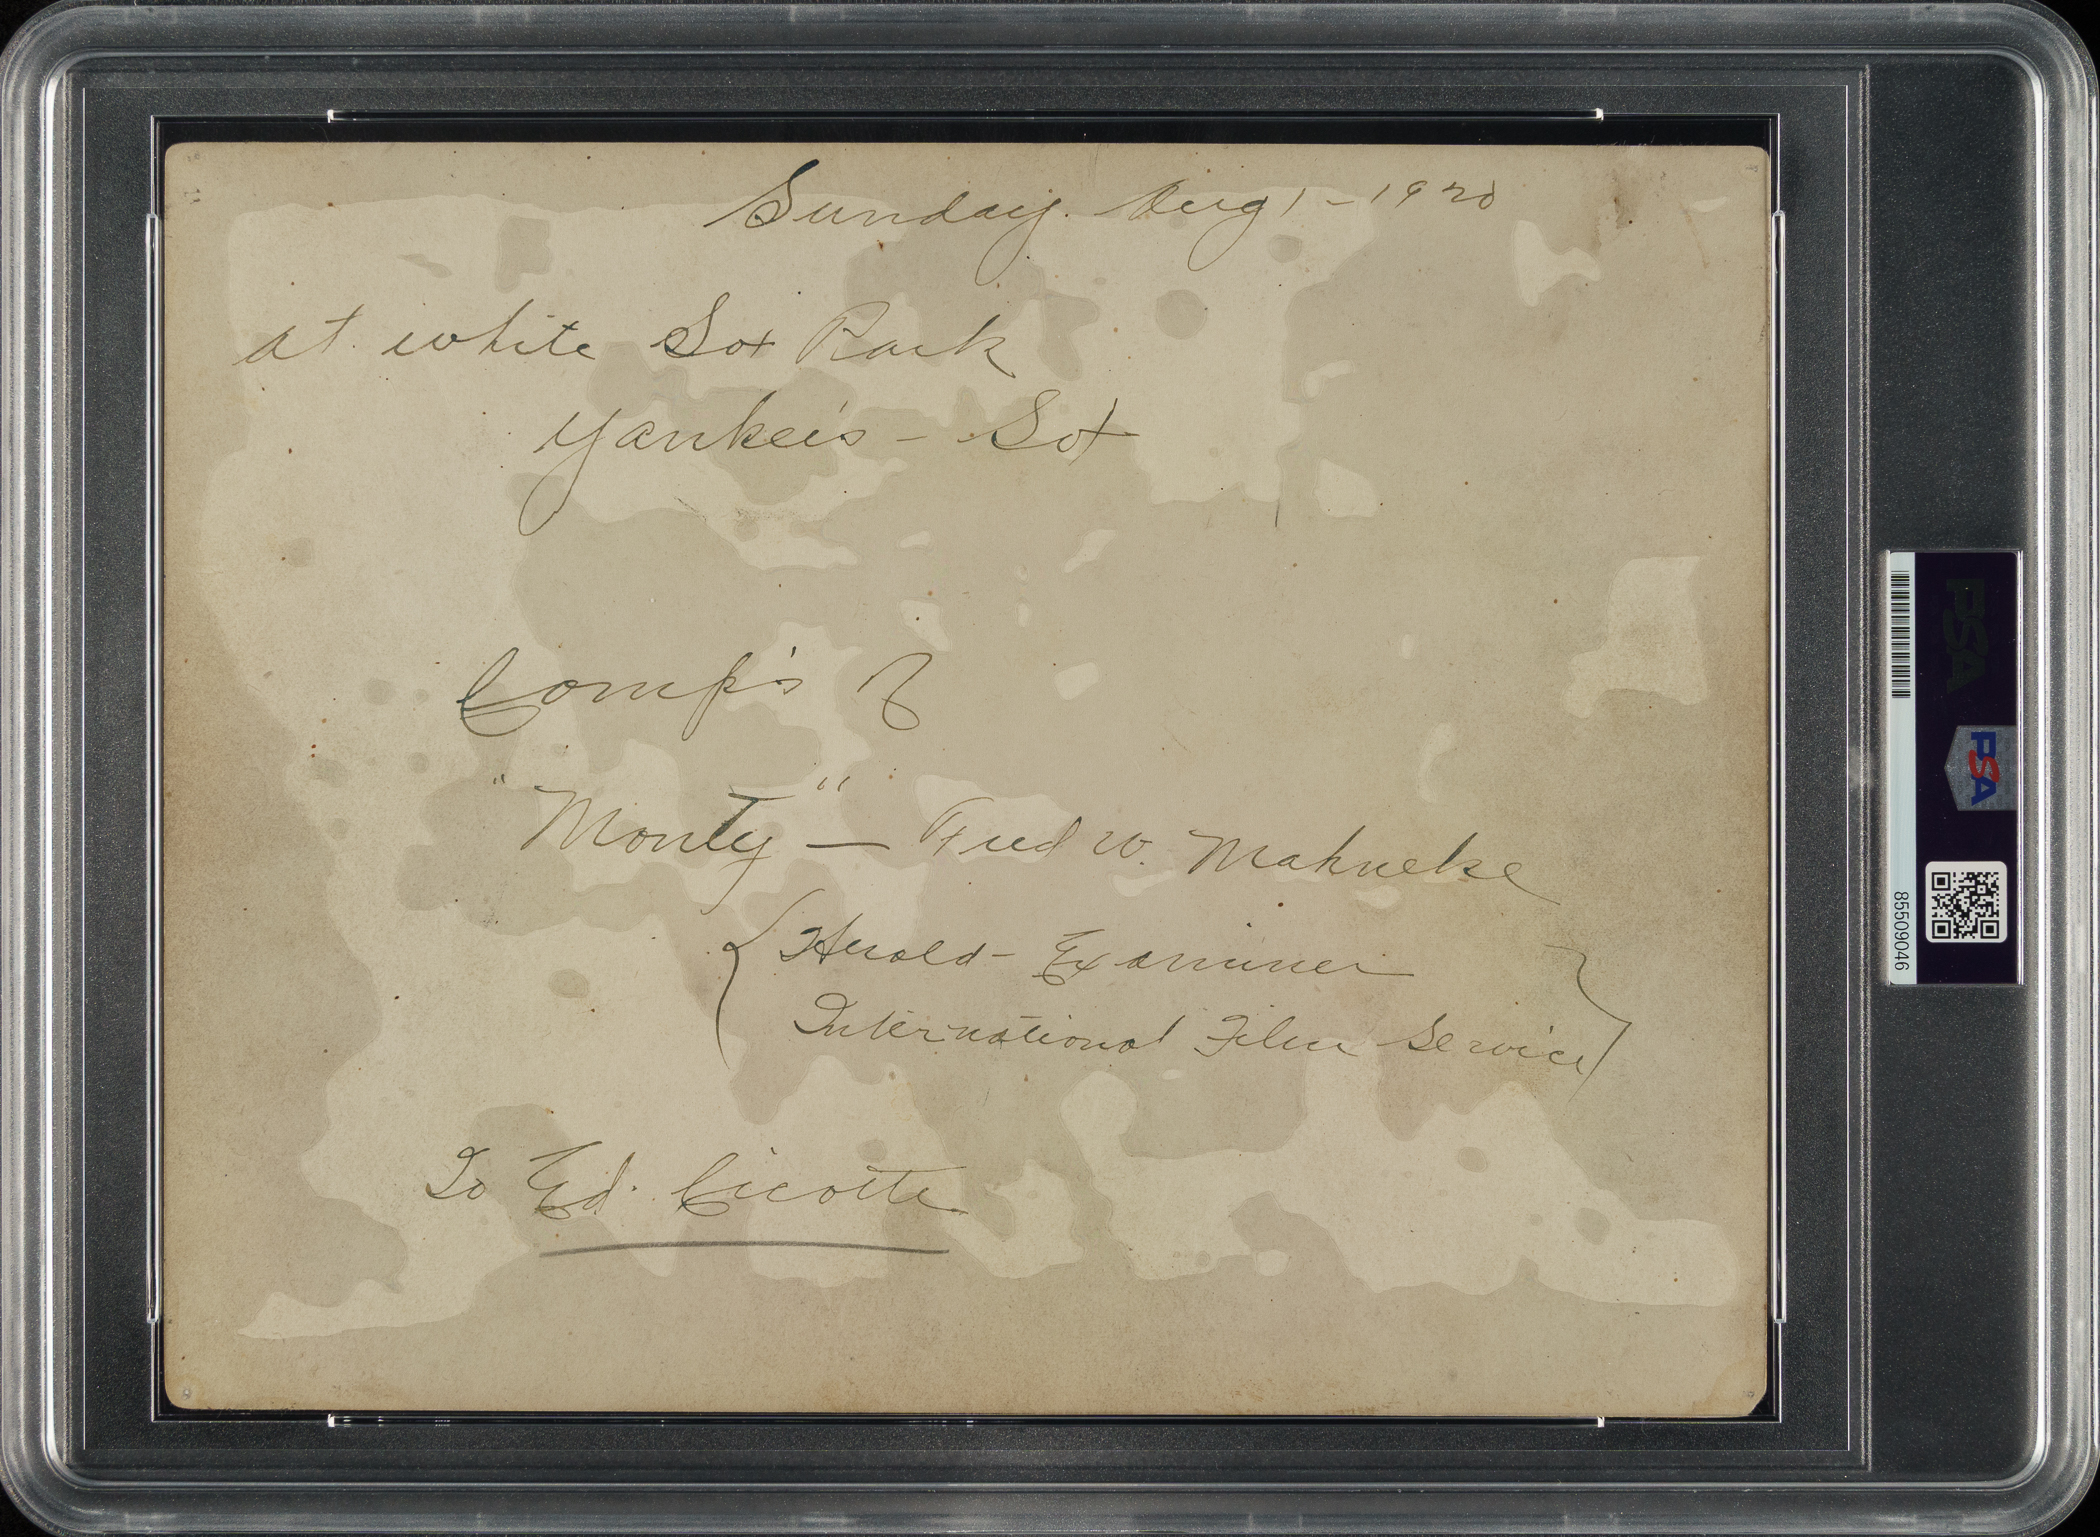 Sunday. Aug 1 - 1920
at white Sox Park
Yankee's - Sox
Comp's of
"Monty" — Fred W. Mahnke
Herald - Examiner
International Film Service
To Ed. Cicotte
PSA
PSA
85509046